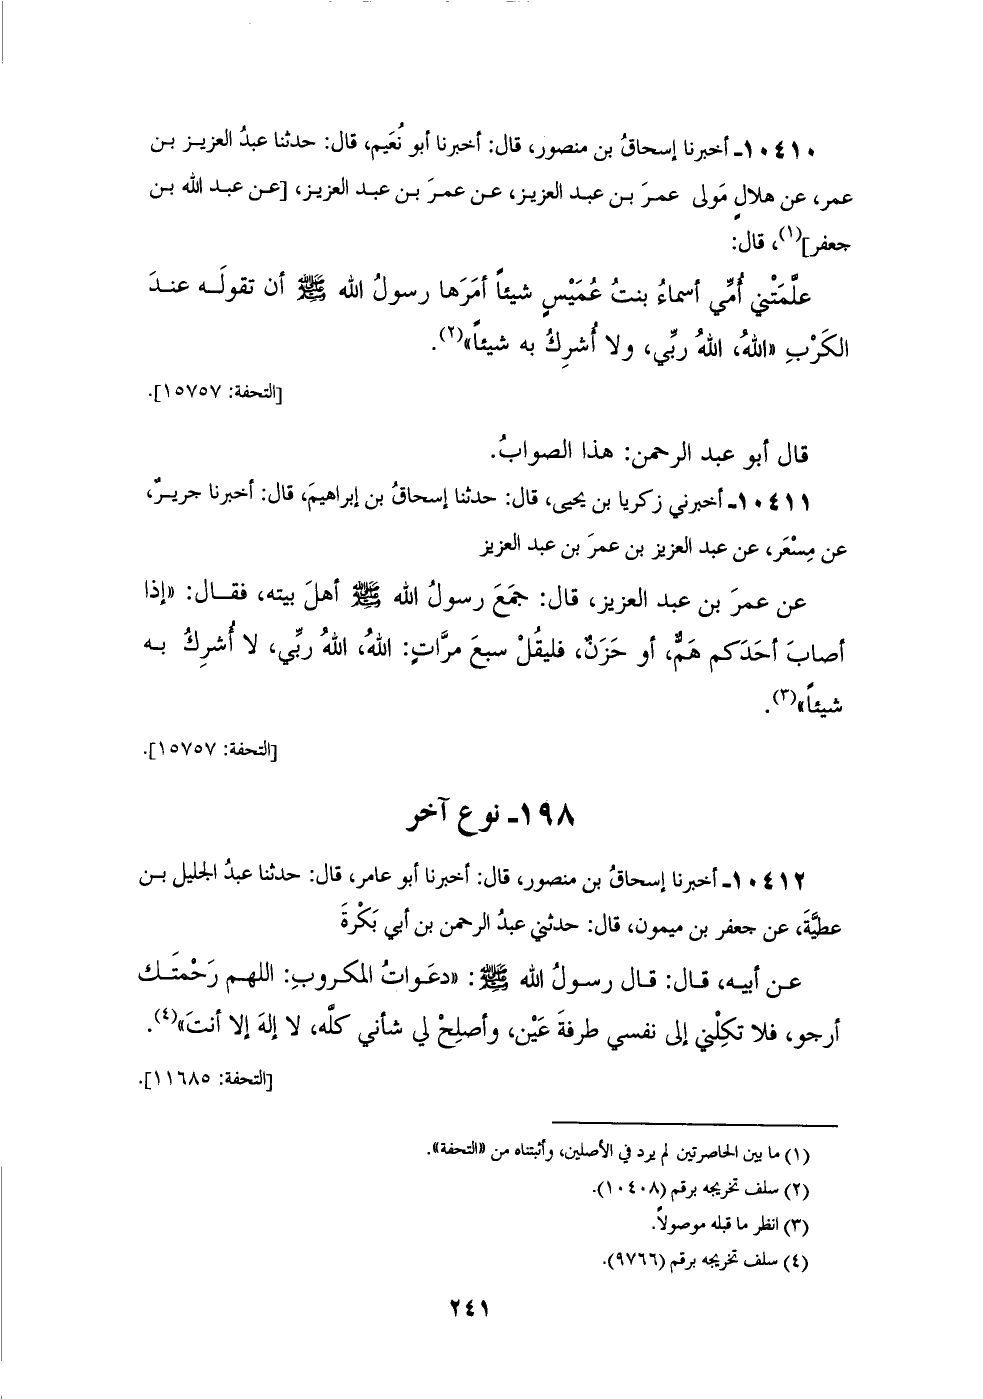 ١٠٤١٠ـ أخبرنا إسحاقُ بن منصور، قال: أخبرنا أبو نُعَيم، قال: حدثنا عبدُ العزيـز بـن
عمر، عن هلالٍ مَولى عمـرَ بـن عبـد العزيـز، عـن عمـرَ بـن عبـد العزيز، [عـن عبـد الله بـن
جعفر](١)، قال:
علَّمَتْني أُمِّي أسماءُ بنتُ عُمَيْسٍ شيئاً أمَرَها رسولُ الله ﷺ أن تقولَـه عنـدَ
الكَرْبِ «اللهُ، اللهُ ربِّي، ولا أُشرِكُ به شيئاً»(٢).
[التحفة: ١٥٧٥٧].
قال أبو عبد الرحمن: هذا الصوابُ.
١٠٤١١ـ أخبرني زكريا بن يحيى، قال: حدثنا إسحاقُ بن إبراهيمَ، قال: أخبرنا جريـرٌ،
عن مِسْعَر، عن عبد العزيز بن عمرَ بن عبد العزيز
عن عمرَ بن عبد العزيز، قال: جمَعَ رسولُ الله ﷺ أهلَ بيته، فقـال: «إذا
أصابَ أحَدَكم هَمٌّ، أو حَزَنٌ، فليقُلْ سبعَ مرَّاتٍ: اللهُ، اللهُ ربِّي، لا أُشرِكُ بـه
شيئاً»(٣).
[التحفة: ١٥٧٥٧].
١٩٨ـ نوع آخر
١٠٤١٢ـ أخبرنا إسحاقُ بن منصور، قال: أخبرنا أبو عامر، قال: حدثنا عبدُ الجليل بـن
عطيَّةَ، عن جعفر بن ميمون، قال: حدثني عبدُ الرحمن بن أبي بَكْرةَ
عـن أبيـه، قـال: قـال رسـولُ الله ﷺ: «دعَـواتُ المكـروبِ: اللهم رَحْمتَـك
أرجو، فلا تكِلْني إلى نفسي طرفةَ عَيْن، وأصلِحْ لي شأني كلَّه، لا إلهَ إلا أنتَ»(٤).
[التحفة: ١١٦٨٥].
(١) ما بين الحاصرتين لم يرد في الأصلين، وأثبتناه من «التحفة».
(٢) سلف تخريجه برقم (١٠٤٠٨).
(٣) انظر ما قبله موصولاً.
(٤) سلف تخريجه برقم (٩٧٦٦).
٢٤١